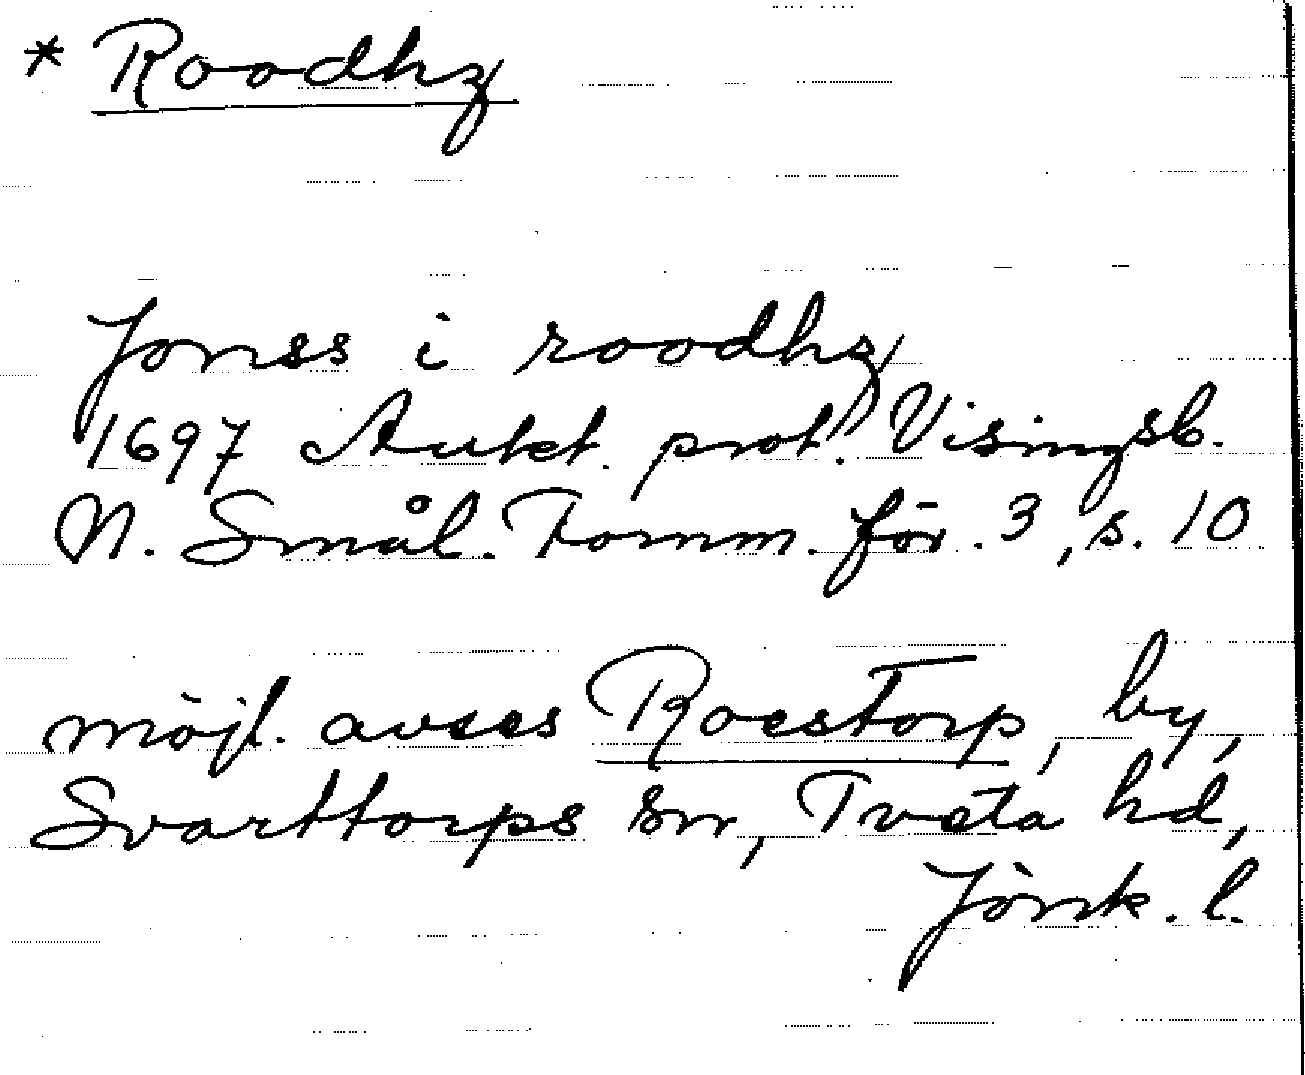 * Roodhz
Jonss i roodhz
1697 Aukt. prot. Visingsb.
N. Smål. Fornm. för. 3, s. 10
möjl. avses Roestorp, by,
Svarttorps sn, Tveta hd,
Jönk. l.